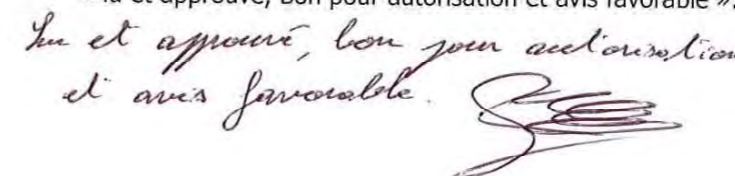 lu et approuvé, Bon pour autorisation et avis favorable ».
Lu et approuvé, bon pour autorisation
et avis favorable.